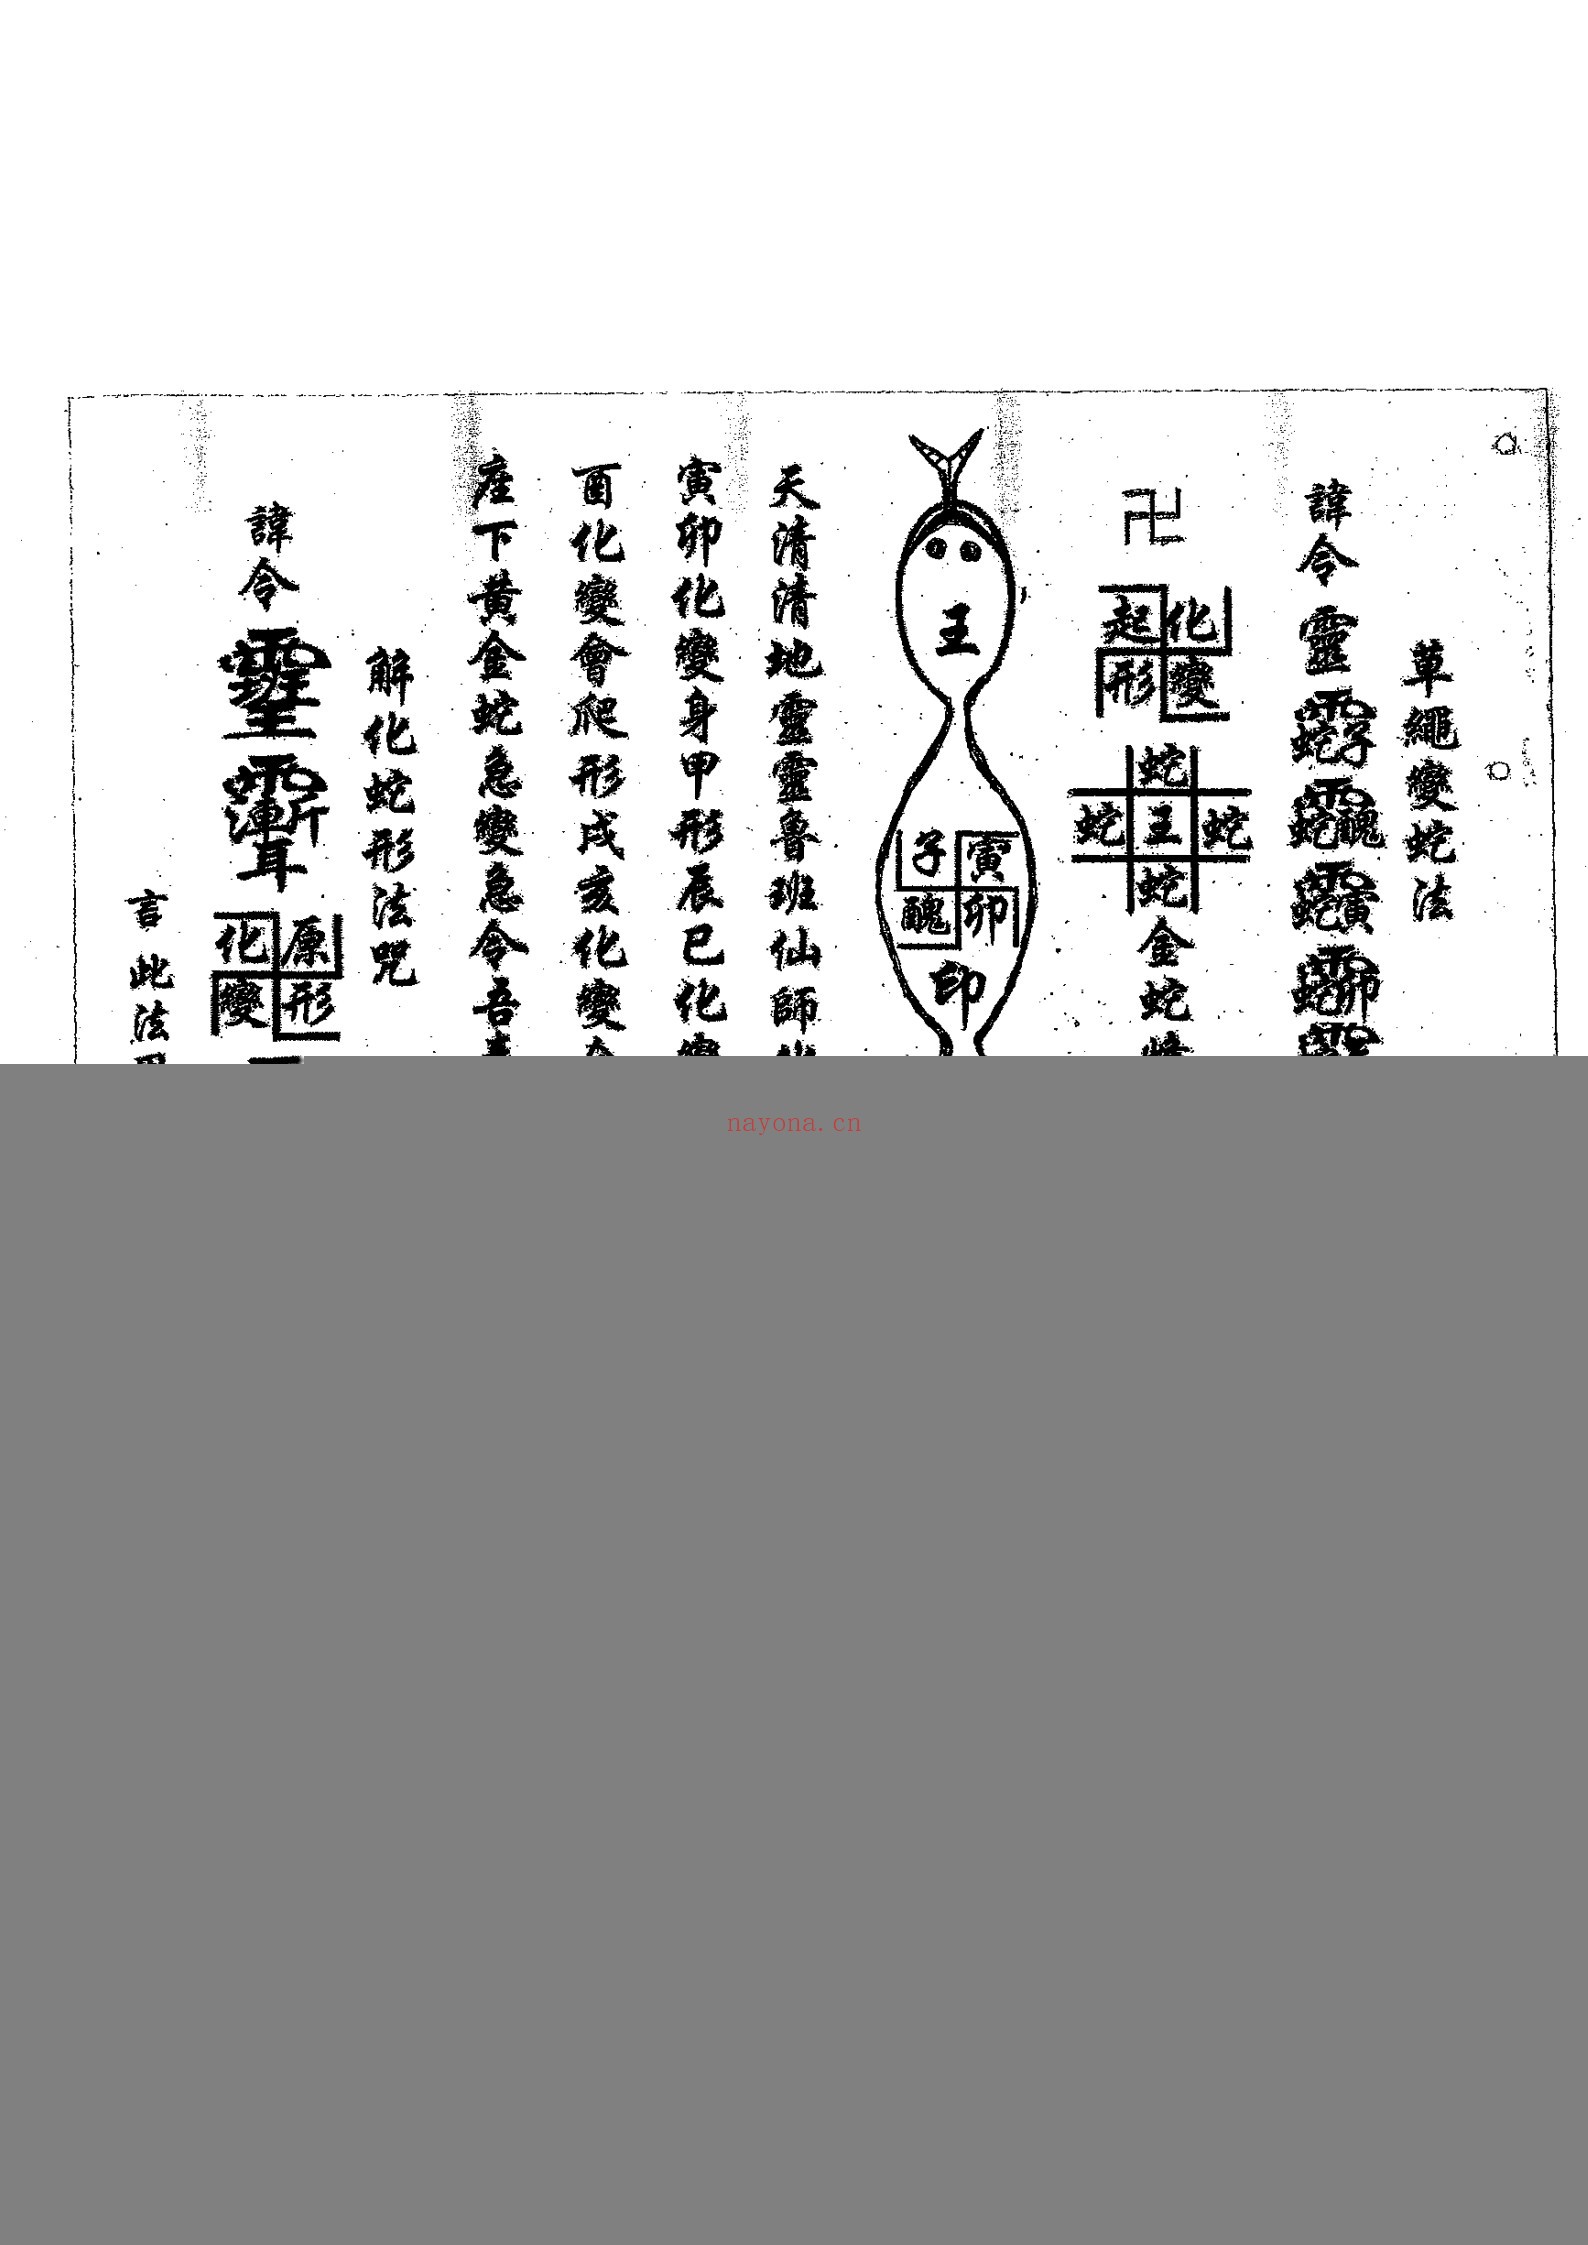 草繩變蛇法
諱令靈
卍
起化
形變
蛇
蛇王蛇
蛇
金蛇
王
子寅
醜卯
印
天清清地靈靈魯班仙師
寅卯化變身甲形辰巳化變
酉化變會爬形戌亥化變
座下黃金蛇急變急令吾
解化蛇形法咒
諱令
化原
變形
言此法
nayona.cn